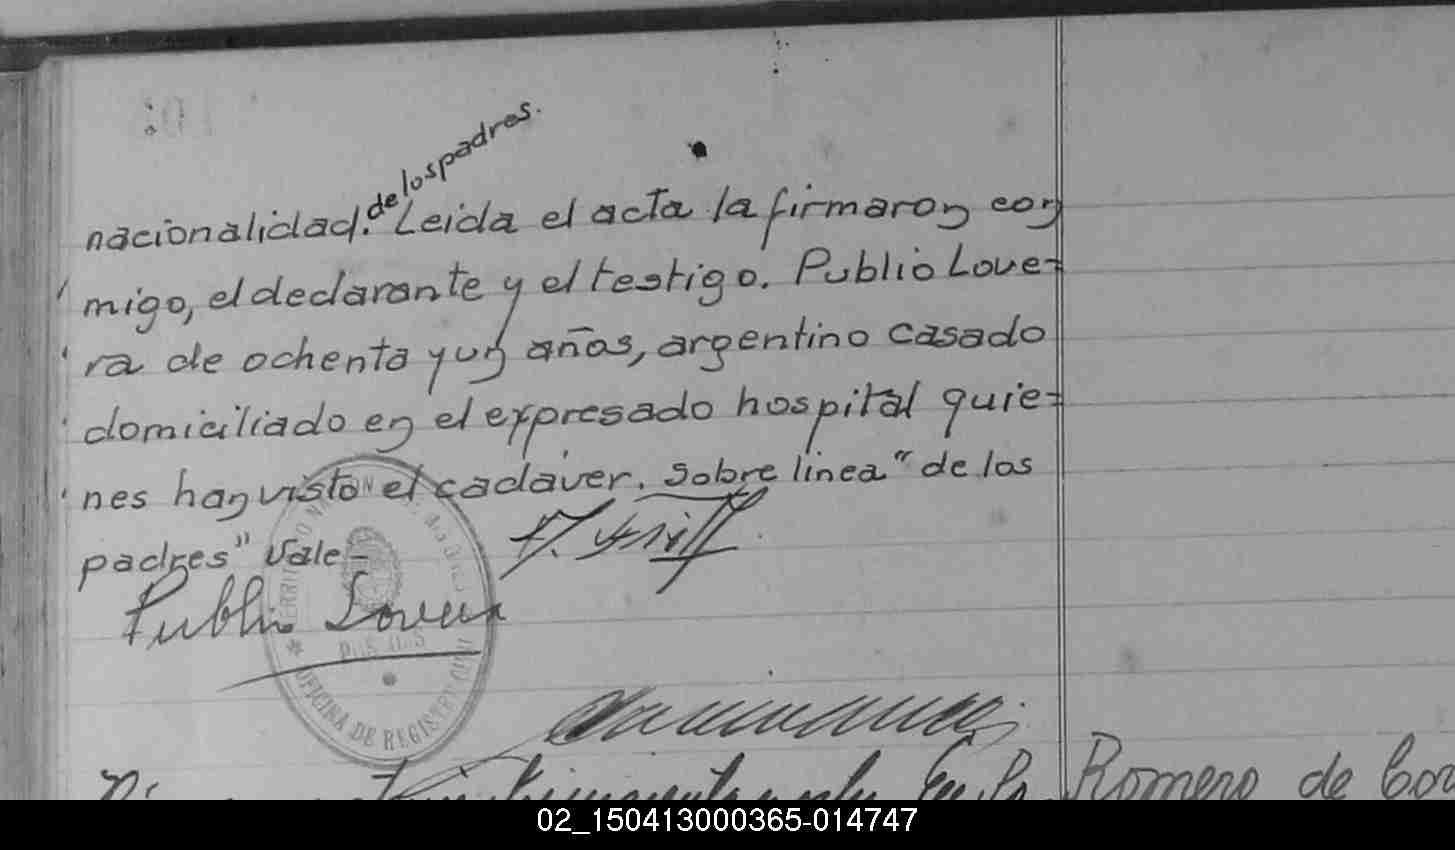 de los padres.
nacionalidad. Leida el acta la firmaron con
migo, el declarante y el testigo. Publio Love=
ra de ochenta y un años, argentino casado
domiciliado en el expresado hospital quie=
nes han visto el cadaver. Sobre linea "de los
padres" vale-
Publio Lovera
OFICINA DE REGISTRO CIVIL
Romero de
02_150413000365-014747